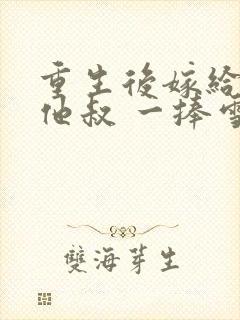 重生後嫁給
他叔 一捧雪
雙海芽生